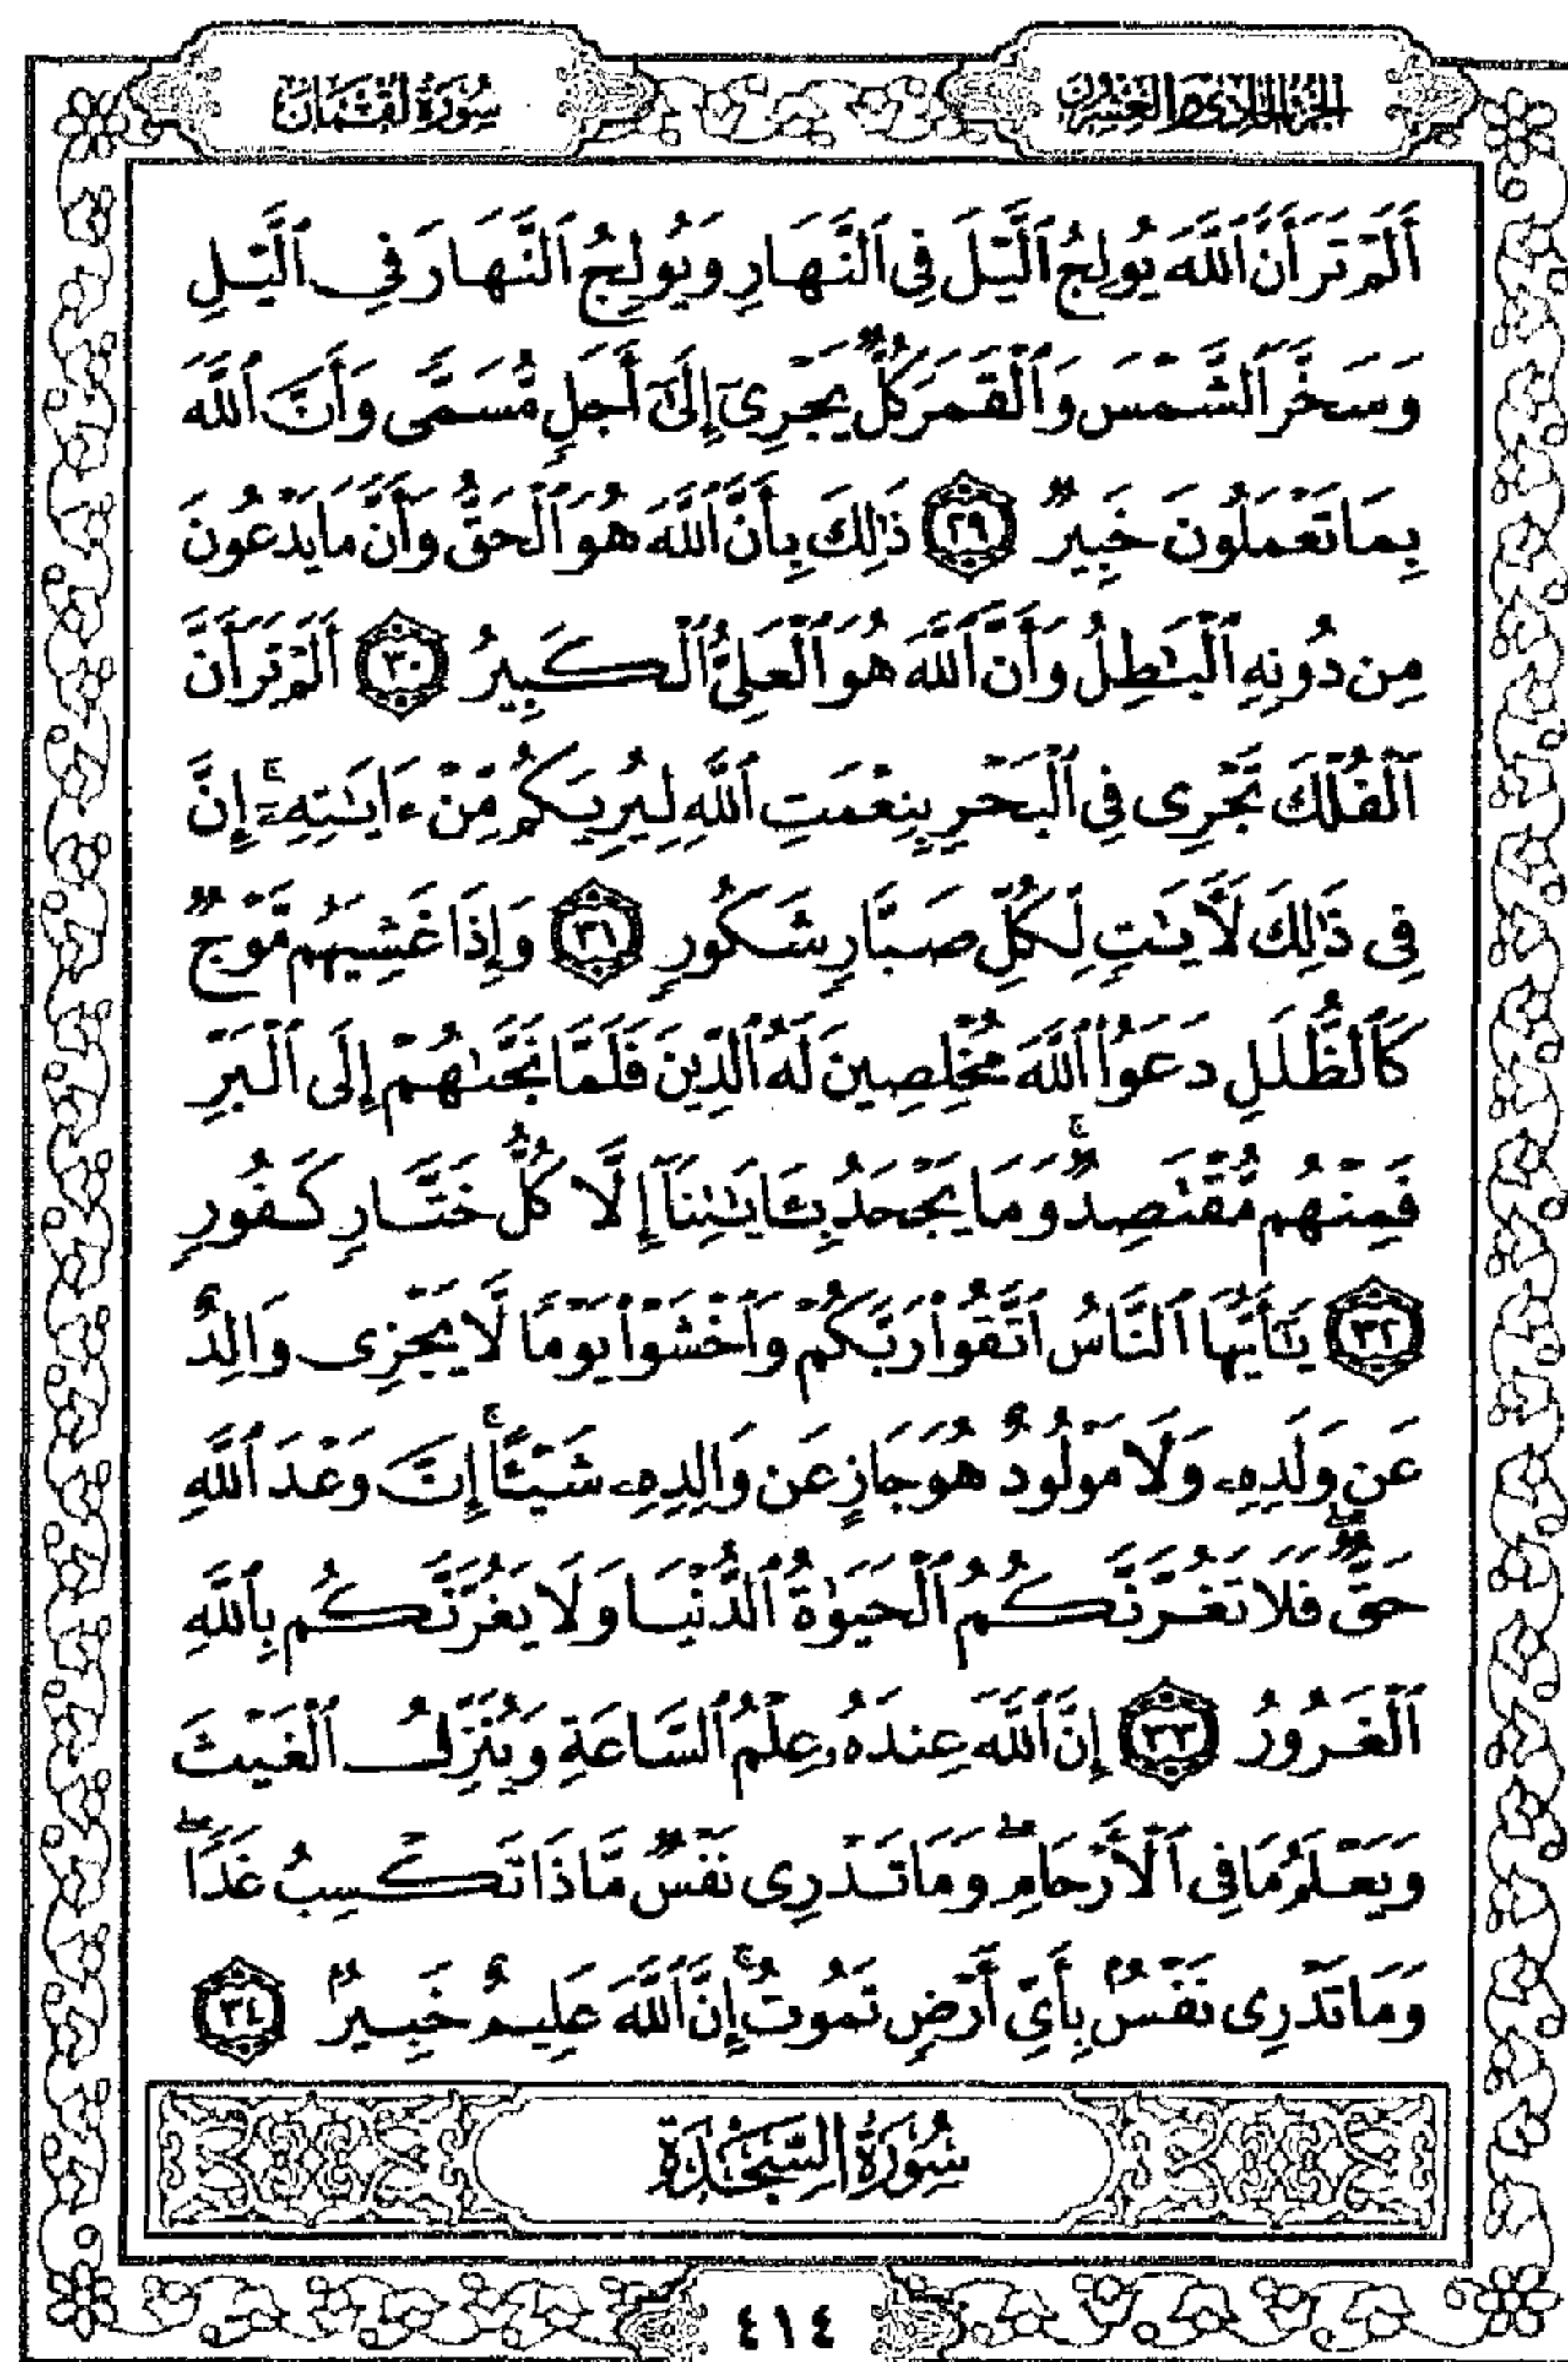 الجزء الحادي والعشرون
سُورَةُ لُقْمَان
أَلَمْ تَرَ أَنَّ ٱللَّهَ يُولِجُ ٱلَّيْلَ فِى ٱلنَّهَارِ وَيُولِجُ ٱلنَّهَارَ فِى ٱلَّيْلِ
وَسَخَّرَ ٱلشَّمْسَ وَٱلْقَمَرَ كُلٌّ يَجْرِىٓ إِلَىٰٓ أَجَلٍ مُّسَمًّى وَأَنَّ ٱللَّهَ
بِمَا تَعْمَلُونَ خَبِيرٌ ٢٩ ذَٰلِكَ بِأَنَّ ٱللَّهَ هُوَ ٱلْحَقُّ وَأَنَّ مَا يَدْعُونَ
مِن دُونِهِ ٱلْبَٰطِلُ وَأَنَّ ٱللَّهَ هُوَ ٱلْعَلِىُّ ٱلْكَبِيرُ ٣٠ أَلَمْ تَرَ أَنَّ
ٱلْفُلْكَ تَجْرِى فِى ٱلْبَحْرِ بِنِعْمَتِ ٱللَّهِ لِيُرِيَكُم مِّنْ ءَايَٰتِهِۦٓ ۚ إِنَّ
فِى ذَٰلِكَ لَءَايَٰتٍ لِّكُلِّ صَبَّارٍ شَكُورٍ ٣١ وَإِذَا غَشِيَهُم مَّوْجٌ
كَٱلظُّلَلِ دَعَوُا۟ ٱللَّهَ مُخْلِصِينَ لَهُ ٱلدِّينَ فَلَمَّا نَجَّىٰهُمْ إِلَى ٱلْبَرِّ
فَمِنْهُم مُّقْتَصِدٌ ۚ وَمَا يَجْحَدُ بِـَٔايَٰتِنَآ إِلَّا كُلُّ خَتَّارٍ كَفُورٍ
٣٢ يَٰٓأَيُّهَا ٱلنَّاسُ ٱتَّقُوا۟ رَبَّكُمْ وَٱخْشَوْا۟ يَوْمًا لَّا يَجْزِى وَالِدٌ
عَن وَلَدِهِۦ وَلَا مَوْلُودٌ هُوَ جَازٍ عَن وَالِدِهِۦ شَيْـًٔا ۚ إِنَّ وَعْدَ ٱللَّهِ
حَقٌّ ۖ فَلَا تَغُرَّنَّكُمُ ٱلْحَيَوٰةُ ٱلدُّنْيَا وَلَا يَغُرَّنَّكُم بِٱللَّهِ
ٱلْغَرُورُ ٣٣ إِنَّ ٱللَّهَ عِندَهُۥ عِلْمُ ٱلسَّاعَةِ وَيُنَزِّلُ ٱلْغَيْثَ
وَيَعْلَمُ مَا فِى ٱلْأَرْحَامِ ۖ وَمَا تَدْرِى نَفْسٌ مَّاذَا تَكْسِبُ غَدًا ۖ
وَمَا تَدْرِى نَفْسٌۢ بِأَىِّ أَرْضٍ تَمُوتُ ۚ إِنَّ ٱللَّهَ عَلِيمٌ خَبِيرٌۢ ٣٤
سُورَةُ السَّجْدَةِ
٤١٤